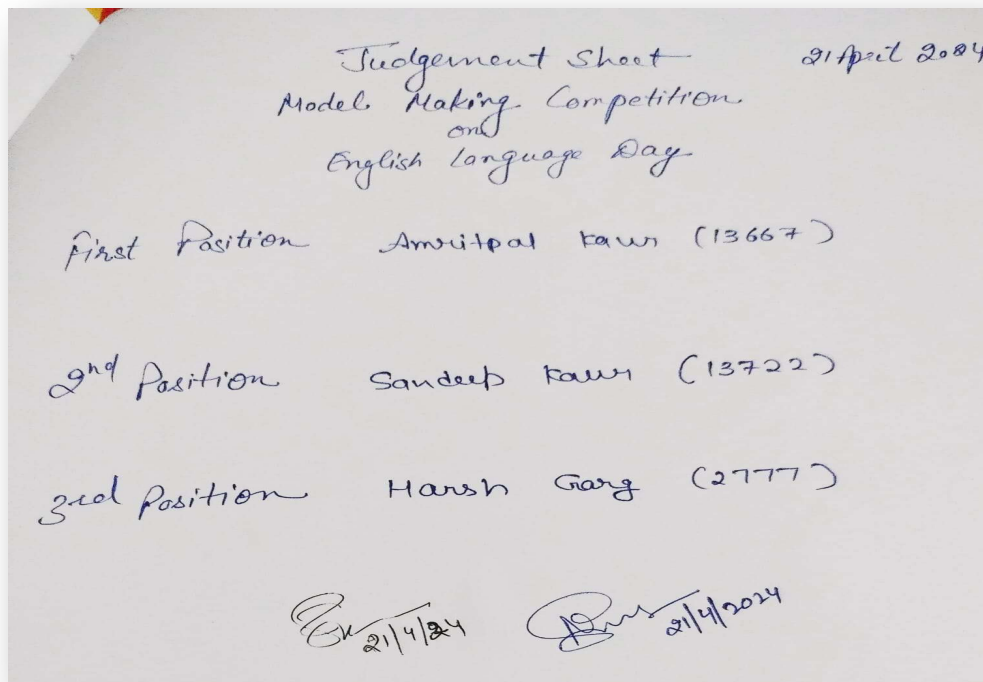 Judgement Sheet 21 April 2024
Model Making Competition
on
English Language Day
First Position Amritpal Kaur (13667)
2nd Position Sandeep Kaur (13722)
3rd Position Harsh Garg (2777)
21/4/24 21/4/2024